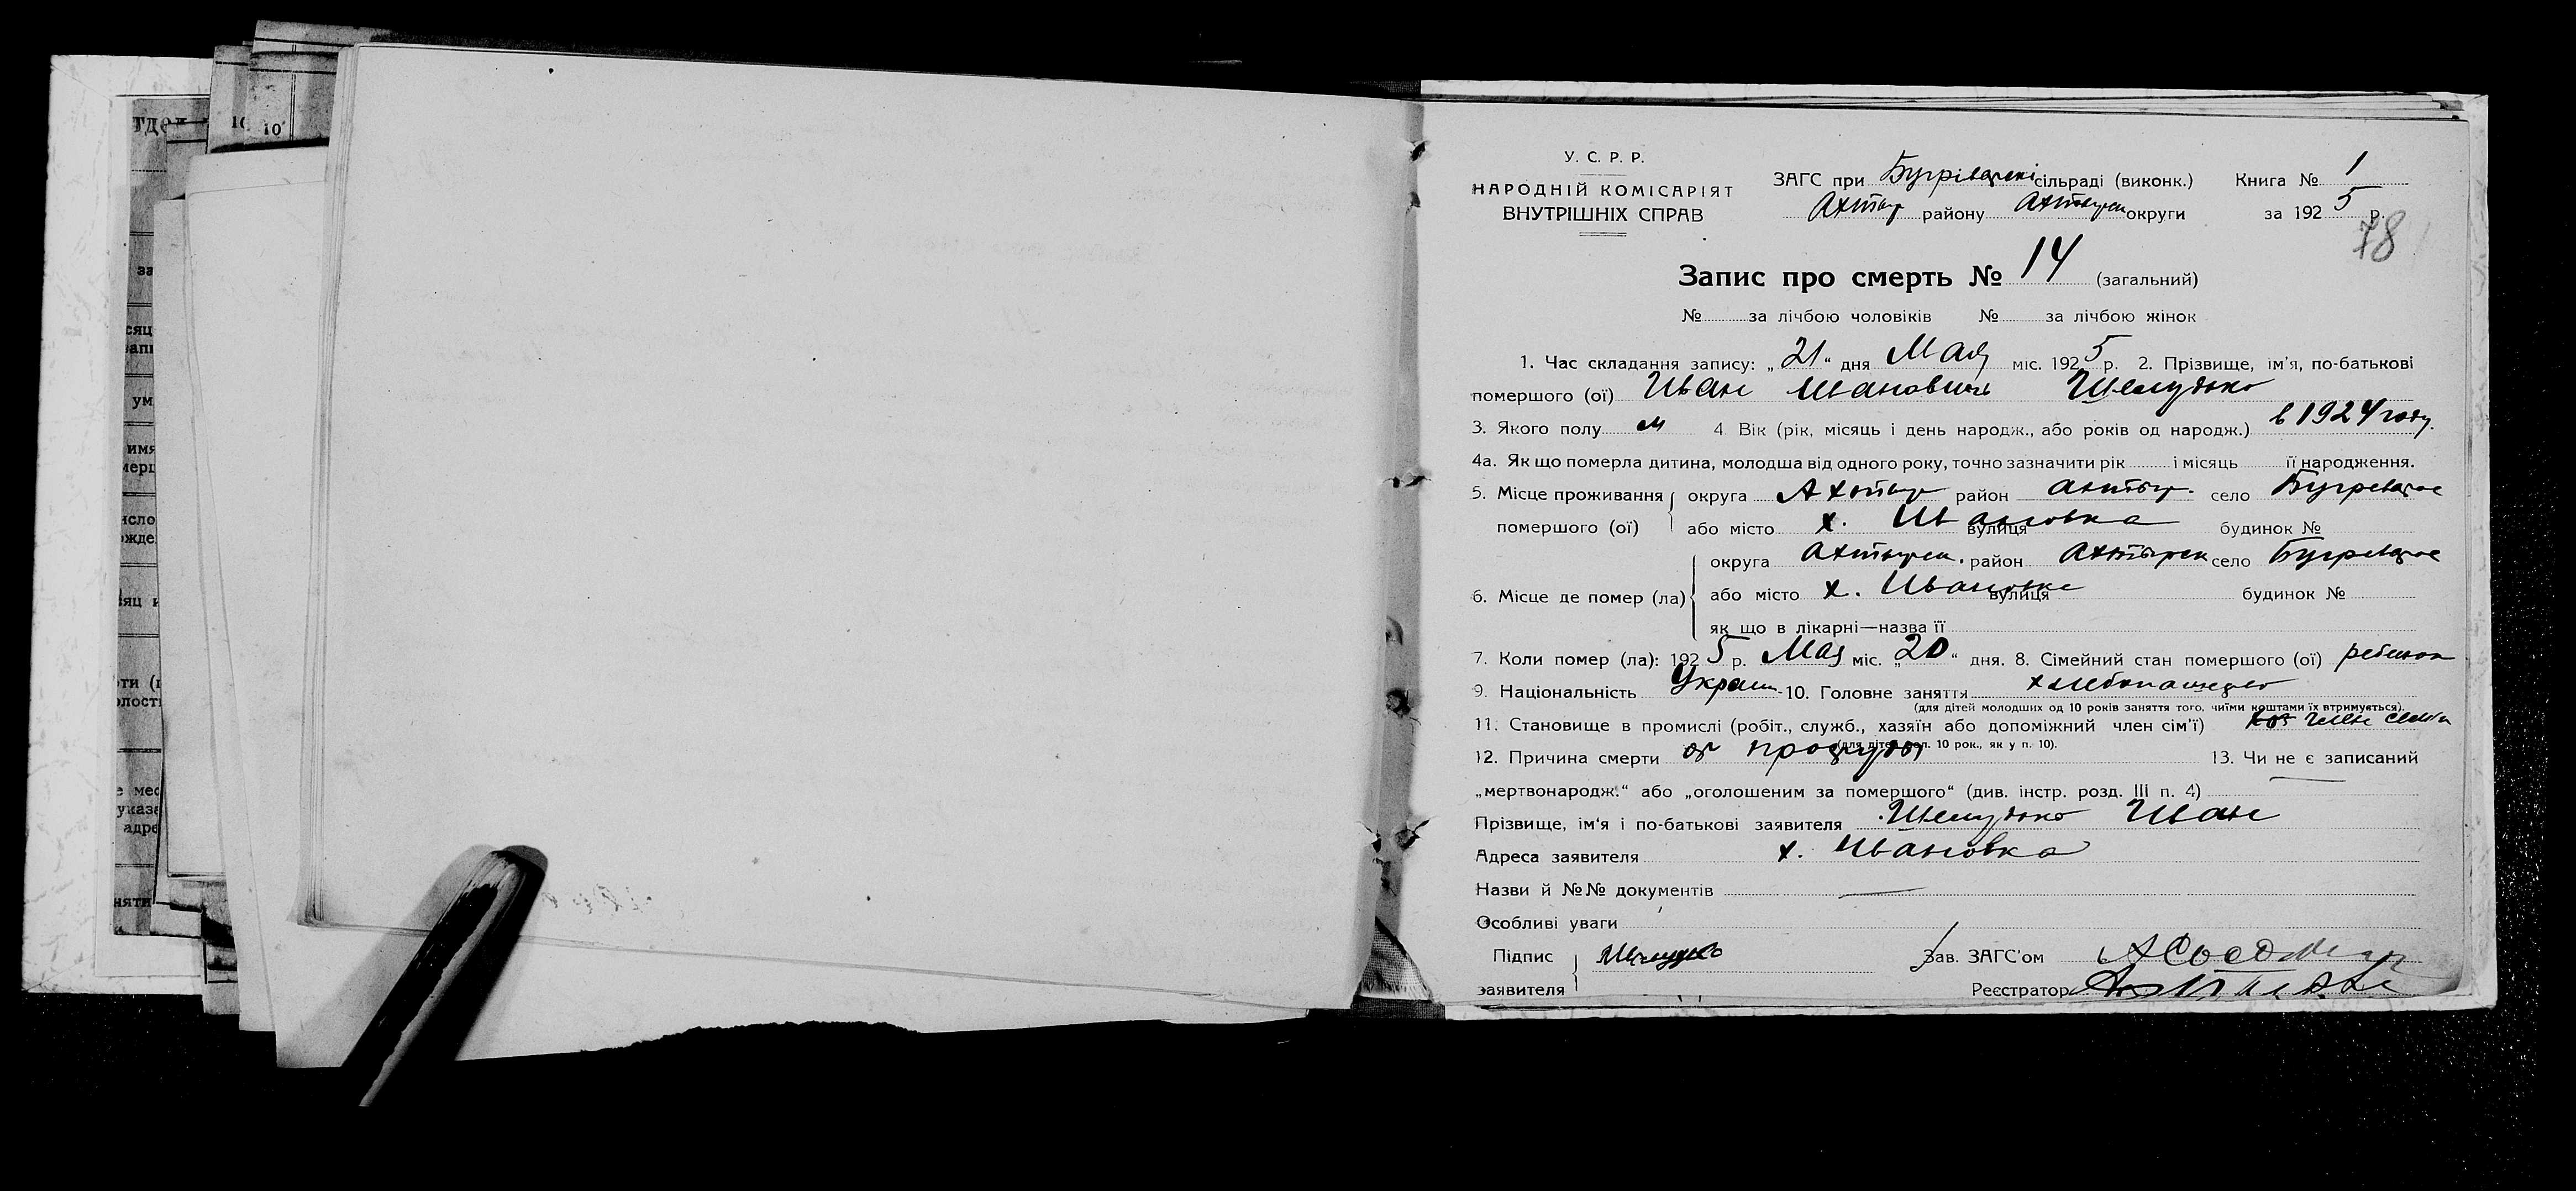 тдел
10
10
за
сяц
запи
ум
имя
мерш
исло
ожде
сяц и
рти (п
олост
е мес
указа
адре
няти
У. С. Р. Р.
НАРОДНІЙ КОМІСАРІЯТ
ВНУТРІШНІХ СПРАВ
ЗАГС при Бугріватскі сільраді (виконк.) Книга № 1
Ахтыр району Ахтырск округи за 1925 р.
78
Запис про смерть № 14 (загальний)
№ за лічбою чоловіків № за лічбою жінок
1. Час складання запису: „21“ дня Мая міс. 1925 р. 2. Прізвище, ім'я, по-батькові
помершого (ої) Иван Иванович Шемудько
3. Якого полу м 4 Вік (рік, місяць і день народж., або років од народж.) в 1924 году.
4а. Як що померла дитина, молодша від одного року, точно зазначити рік і місяць її народження.
5. Місце проживання округа Ахтыр район Ахтыр. село
помершого (ої) або місто х. Ивановка вулиця будинок №
округа Ахтырск. район Ахтырск село
6. Місце де помер (ла) або місто х. Ивановке вулиця будинок №
як що в лікарні—назва її
7. Коли помер (ла): 1925 р. Мая міс. „20“ дня. 8. Сімейний стан помершого (ої) ребенок
9. Національність Украин 10. Головне заняття хлебопашество
(для дітей молодших од 10 років заняття того, чиїми коштами їх втримується).
11. Становище в промислі (робіт., служб., хазяїн або допоміжний член сім'ї) член семьи
(для дітей мол. 10 рок., як у п. 10).
12. Причина смерти от простуды 13. Чи не є записаний
„мертвонародж.“ або „оголошеним за помершого“ (див. інстр. розд. III п. 4) —
Прізвище, ім'я і по-батькові заявителя Шемудько Иван
Адреса заявителя х. Ивановка
Назви й №№ документів —
Особливі уваги
Підпис Шемудько Зав. ЗАГС'ом
заявителя Реєстратор